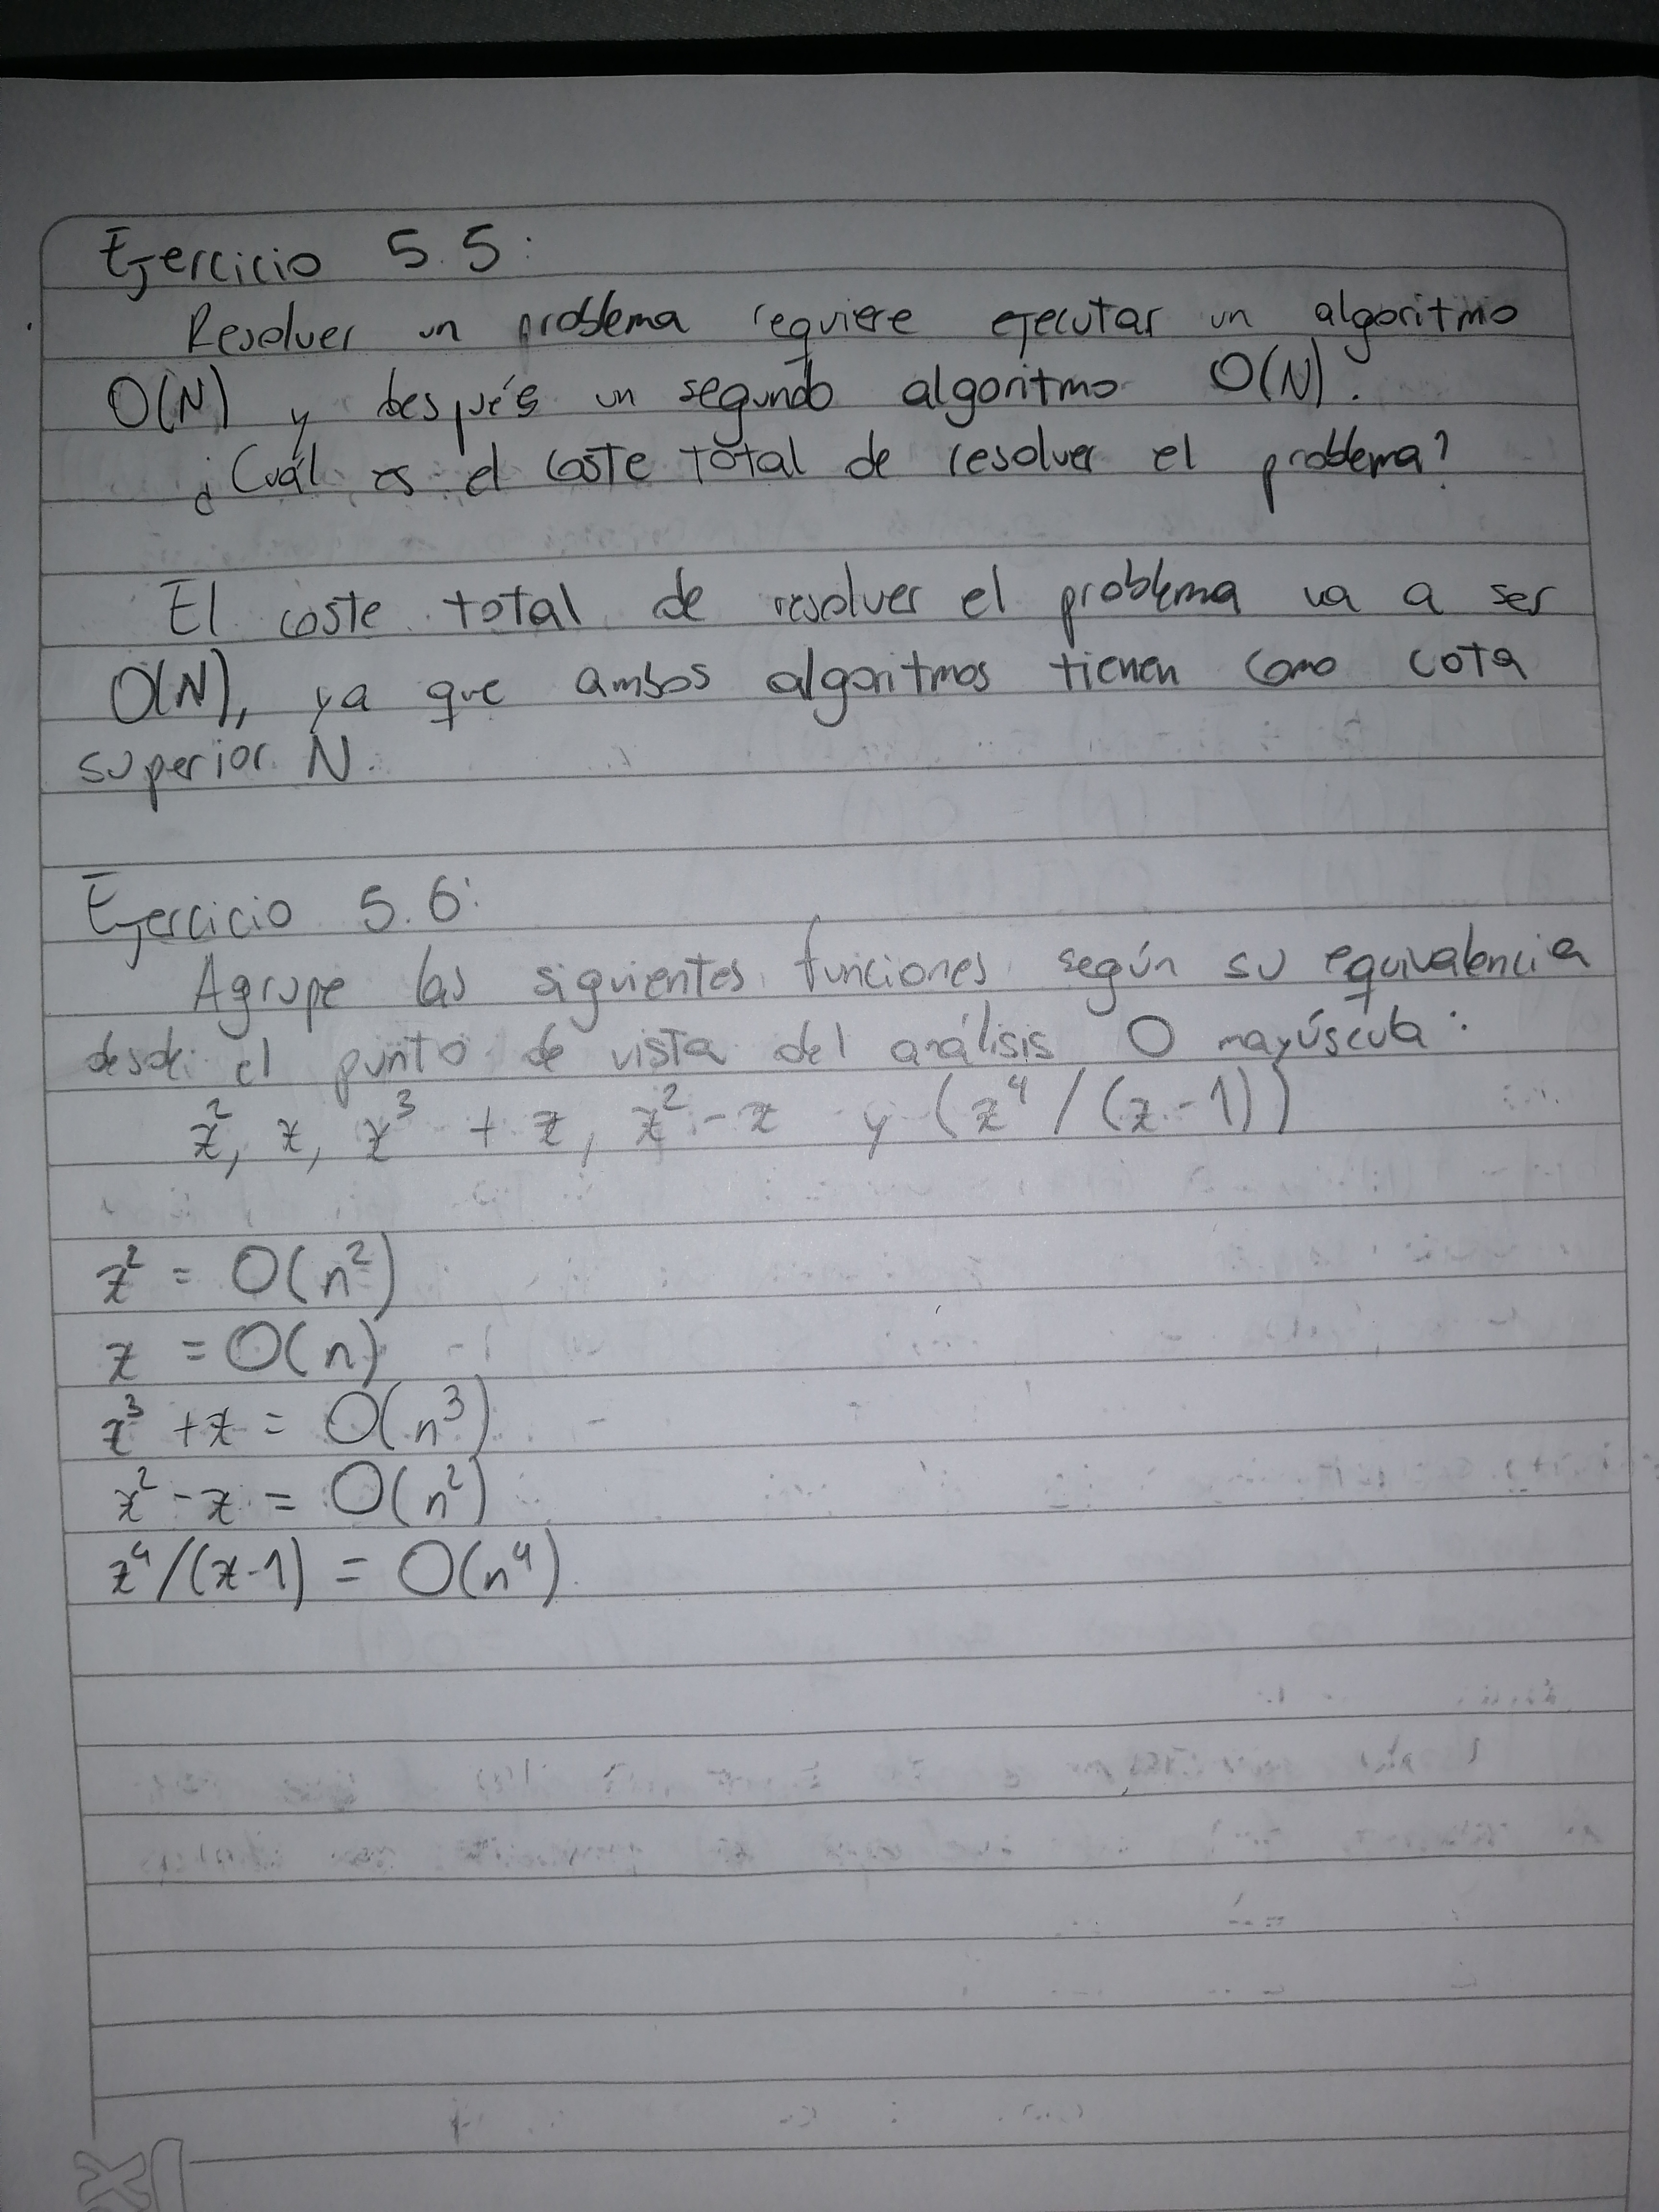 Ejercicio 5.5:
Resolver un problema requiere ejecutar un algoritmo
O(N) y después un segundo algoritmo O(N).
¿Cuál es el coste total de resolver el problema?
El coste total de resolver el problema va a ser
O(N), ya que ambos algoritmos tienen como cota
superior N.
Ejercicio 5.6:
Agrupe las siguientes funciones según su equivalencia
desde el punto de vista del análisis O mayúscula:
x², x, x³ + x, x² - x y (x⁴ / (x - 1))
x² = O(n²)
x = O(n)
x³ + x = O(n³)
x² - x = O(n²)
x⁴ / (x-1) = O(n⁴)